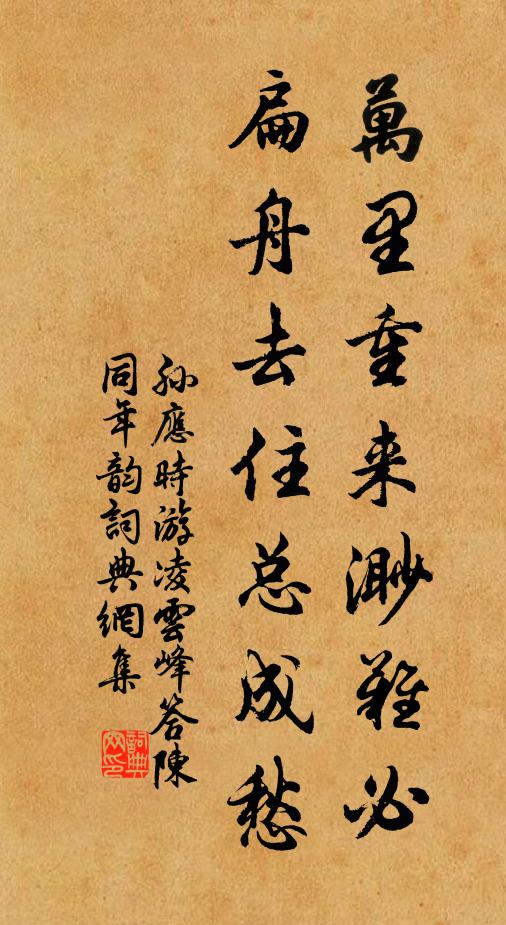 萬里重来渺難必
扁舟去住总成愁
孫應時游凌雲峰答陳
同年韵詞典網集
詞典網印